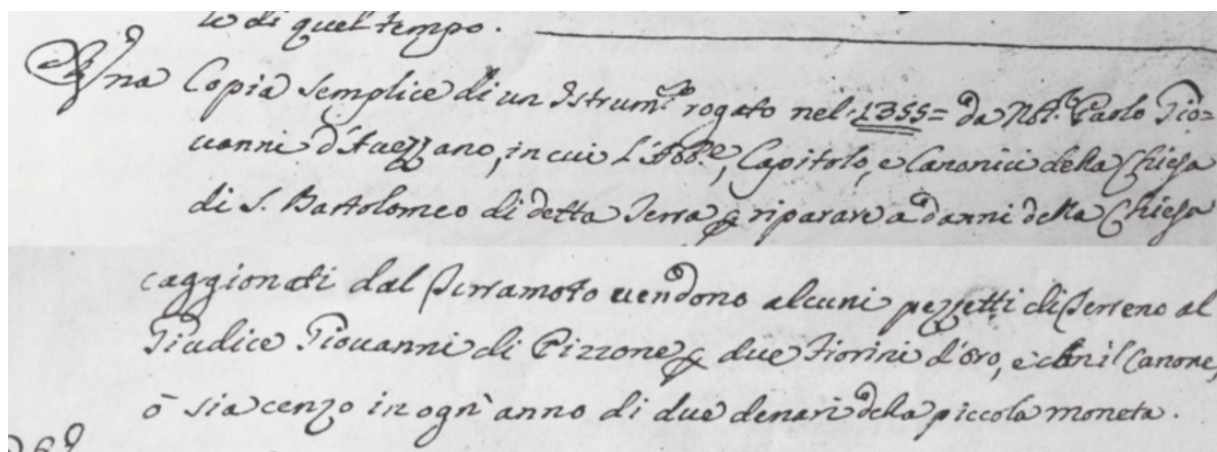 le di quel tempo.
Una Copia semplice di un Istrum.to rogato nel 1355= da Not.o Paolo Gio=
uanni d'Auezzano, in cui l'Abb.e, Capitolo, e Canonici della Chiesa
di S. Bartolomeo di detta Terra p riparare a danni della Chiesa
caggionati dal Terramoto uendono alcuni pezzetti di Terreno al
Giudice Giouanni di Pizzone p due Fiorini d'oro, e con il Canone,
ò sia cenzo in ogn'anno di due denari della piccola moneta.